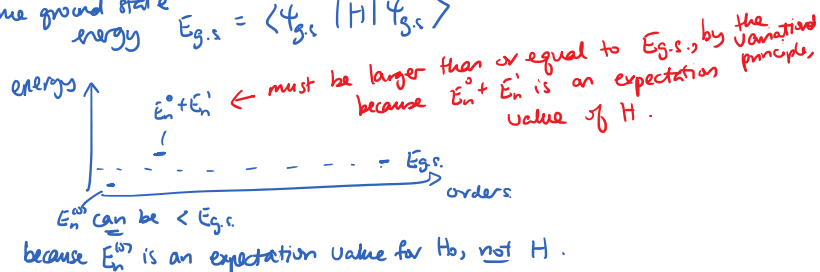 ground state
energy E_{g.s} = ⟨Ψ_{g.s} |H| Ψ_{g.s}⟩
energy
E_n^0 + E_n^1 ← must be larger than or equal to E_{g.s.}, by the variational principle,
because E_n^0 + E_n^1 is an expectation
value of H.
E_{g.s.}
orders.
E_n^{(0)} can be < E_{g.s.}
because E_n^{(0)} is an expectation value for H_0, not H.